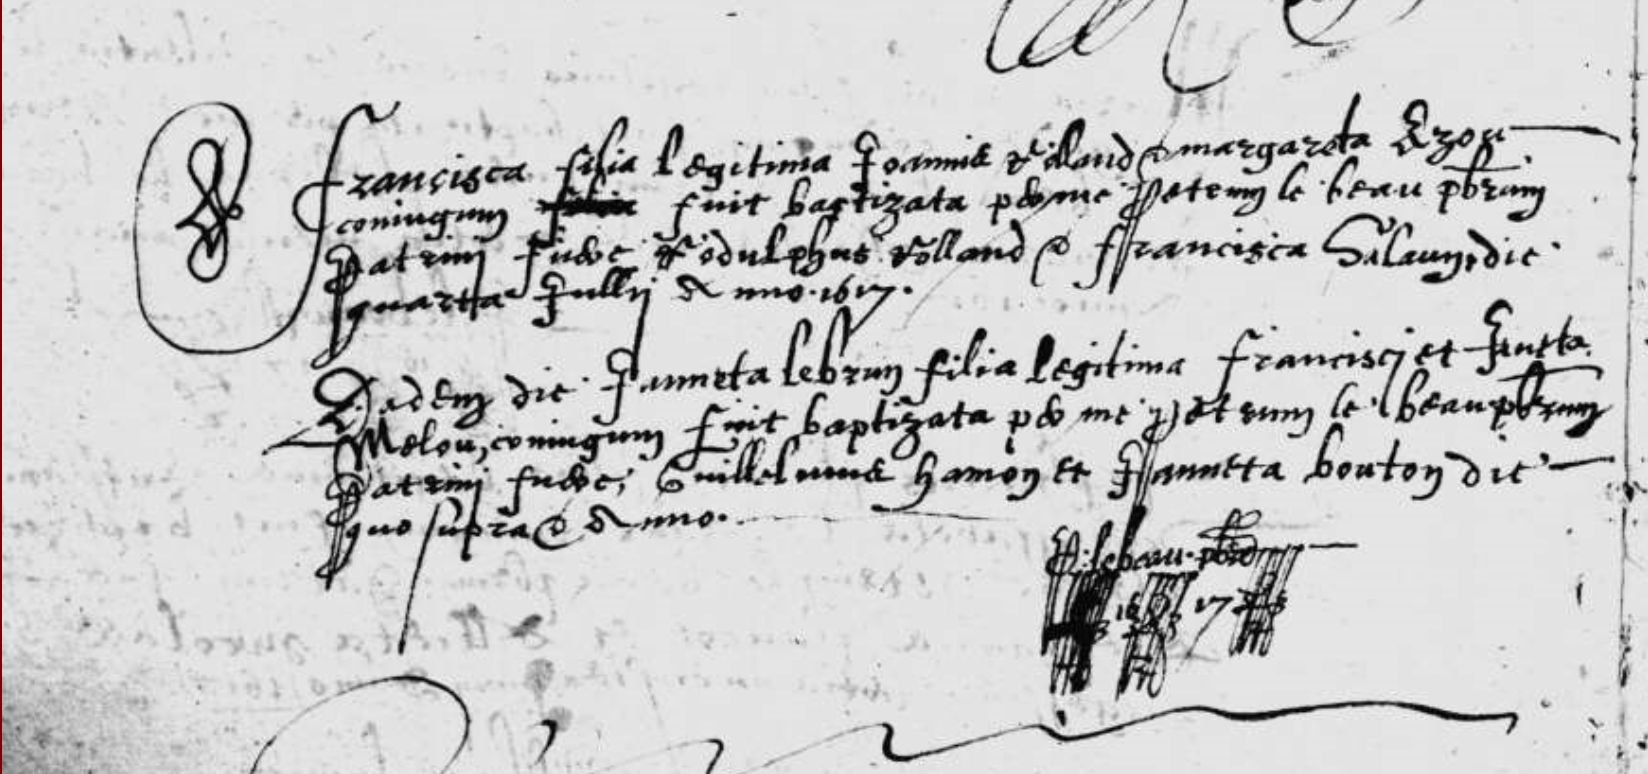 Francisca filia legitima Joannis Rolland & margareta Ezou
coniugum fuit baptizata per me Petrum le beau pbrum
Patrini fuere Rodulphus Rolland & Francisca Salaun, die
quarta Jullij Anno 1617.
Eadem die Janneta lebrun filia legitima Francisci et
Melou, coniugum fuit baptizata per me Petrum le beau pbrum
Patrini fuere, Guillelmus hamon et Janneta bouton die
quo supra & Anno.
P. lebeau pbr
1617